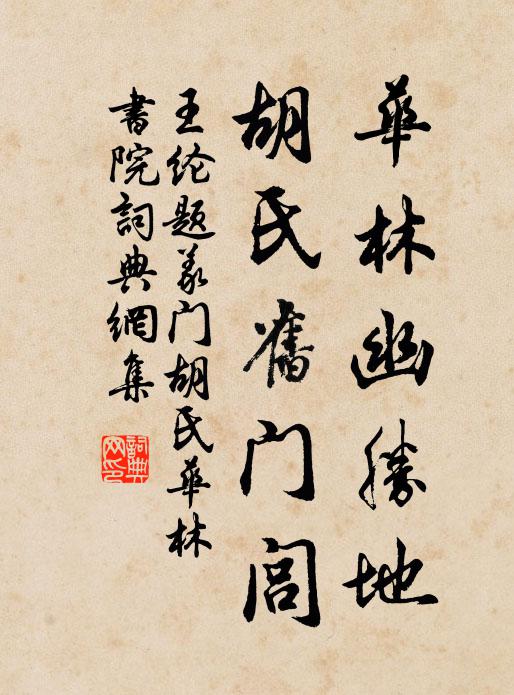 華林幽勝地
胡氏舊门闾
王纶题义门胡氏華林
書院詞典網集
詞典网印